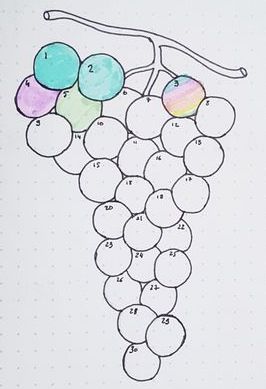 1
2
3
4
5
6
7
8
9
10
11
12
13
14
15
16
17
20
21
22
23
24
25
26
27
28
29
30